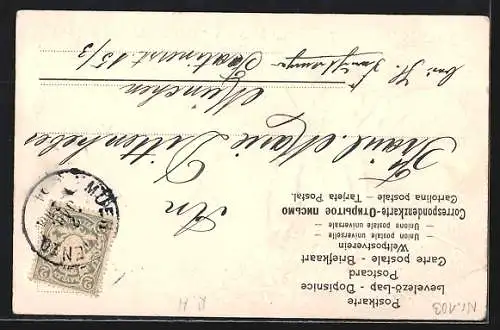 Postkarte
Levelező-Lap - Dopisnice
Postcard
Carte postale - Briefkaart
Weltpostverein
— Union postale universelle —
— Unione postale universale —
Correspondenzkarte-Открытое письмо
Cartolina postale — Tarjeta Postal.
An
Fräul. Marie Dittenheber
München
15/3
bei H.
MUEN
2
R H
Nr. 103